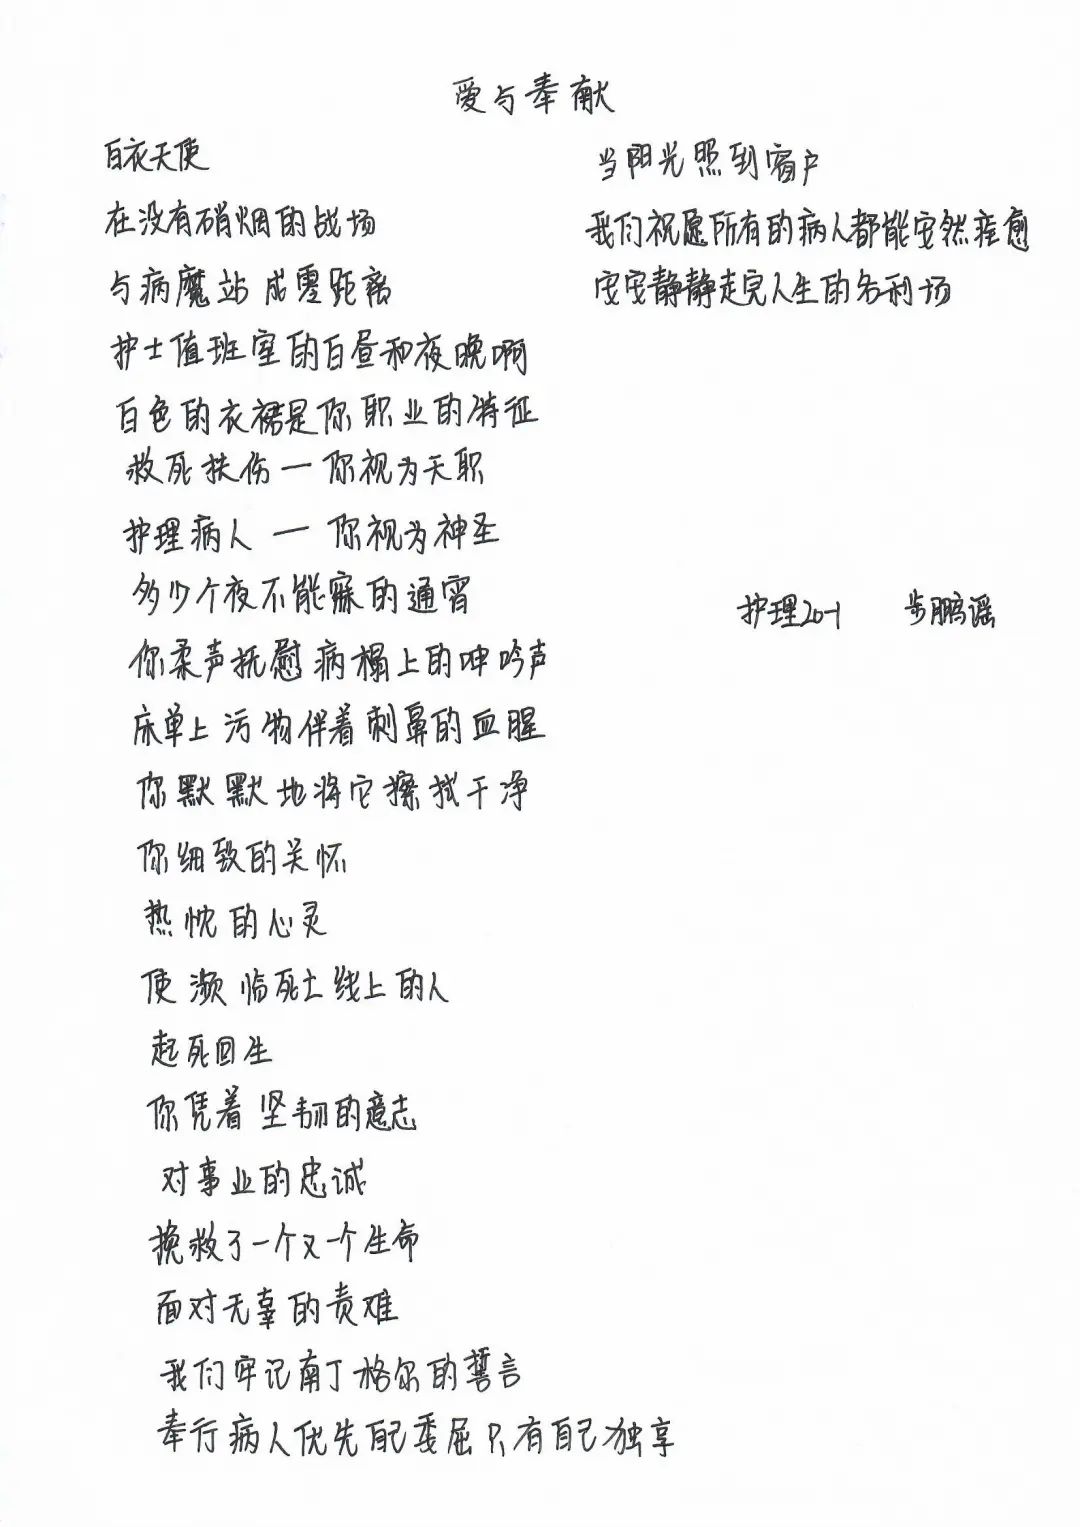 爱与奉献
白衣天使
在没有硝烟的战场
与病魔站成零距离
护士值班室的白昼和夜晚啊
白色的衣裙是你职业的特征
救死扶伤一你视为天职
护理病人一你视为神圣
多少个夜不能寐的通宵
你柔声抚慰病榻上的呻吟声
床单上污物伴着刺鼻的血腥
你默默地将它擦拭干净
你细致的关怀
热忱的心灵
使濒临死亡线上的人
起死回生
你凭着坚韧的意志
对事业的忠诚
挽救了一个又一个生命
面对无辜的责难
我们牢记南丁格尔的誓言
奉行病人优先自己委屈只有自己独享
当阳光照到窗户
我们祝愿所有的病人都能安然痊愈
安安静静走完人生的名利场
护理20-1 步鹏谣